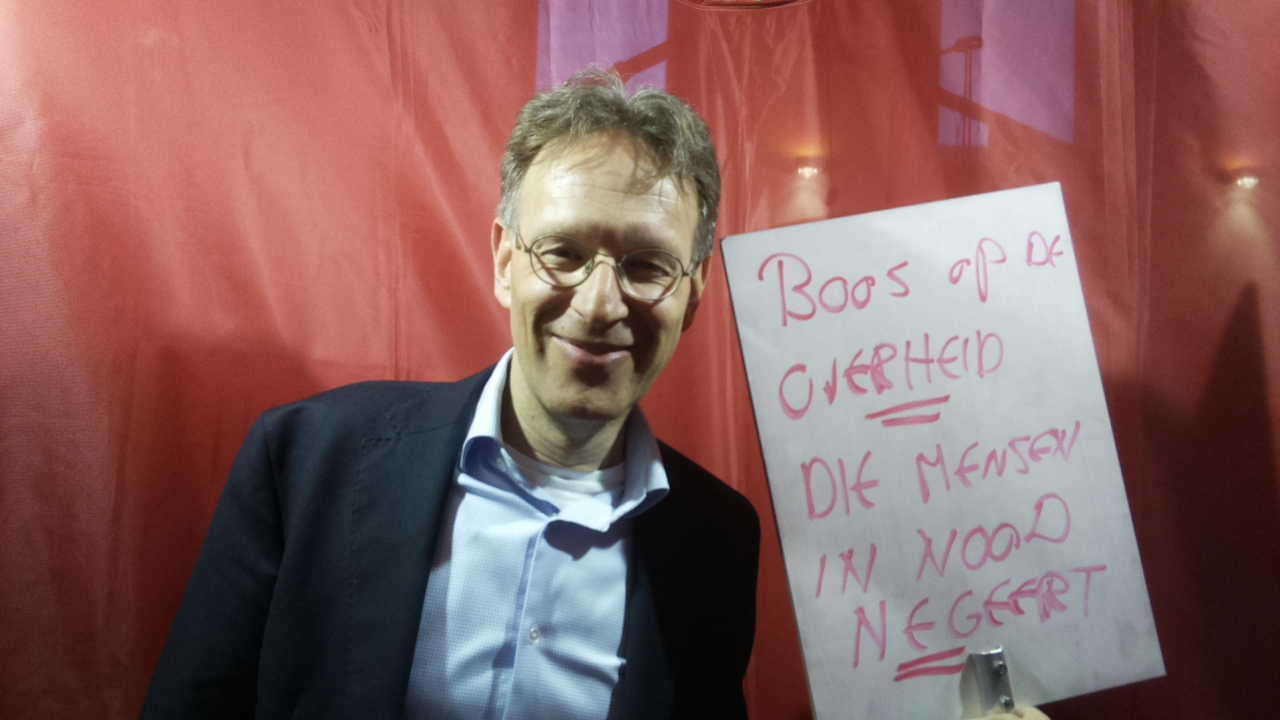 Boos op DE
OVERHEID
DIE MENSEN
IN NOOD
NEGEERT